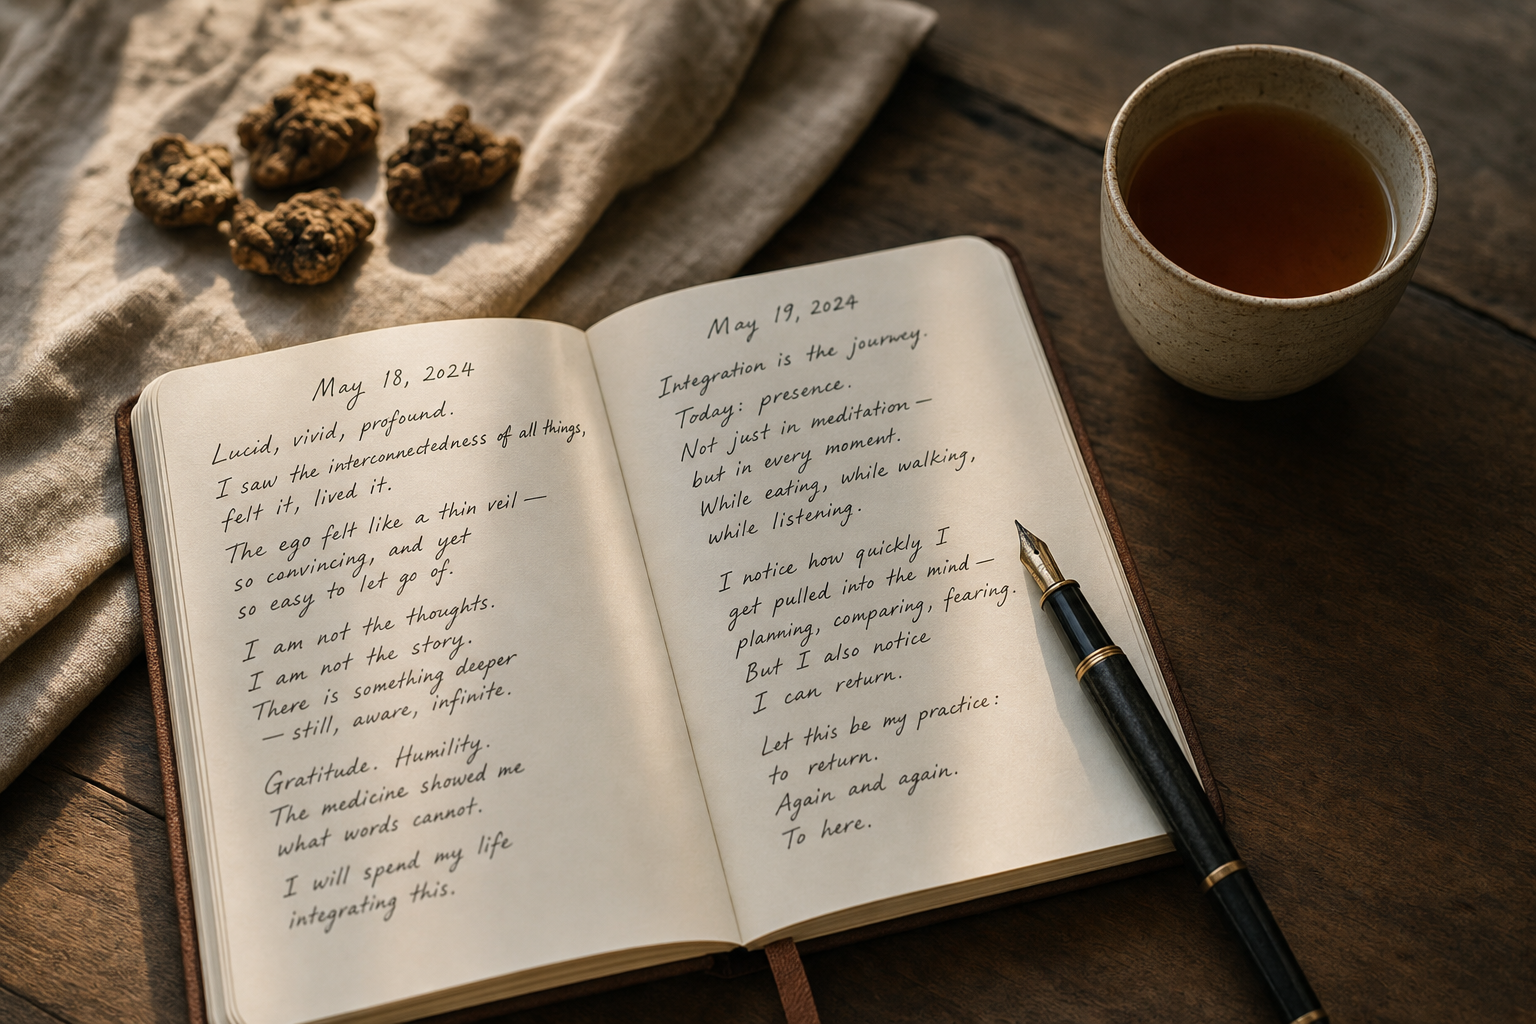 May 18, 2024
Lucid, vivid, profound.
I saw the interconnectedness of all things,
felt it, lived it.
The ego felt like a thin veil —
so convincing, and yet
so easy to let go of.
I am not the thoughts.
I am not the story.
There is something deeper
— still, aware, infinite.
Gratitude. Humility.
The medicine showed me
what words cannot.
I will spend my life
integrating this.
May 19, 2024
Integration is the journey.
Today: presence.
Not just in meditation —
but in every moment.
While eating, while walking,
while listening.
I notice how quickly I
get pulled into the mind —
planning, comparing, fearing.
But I also notice
I can return.
Let this be my practice:
to return.
Again and again.
To here.